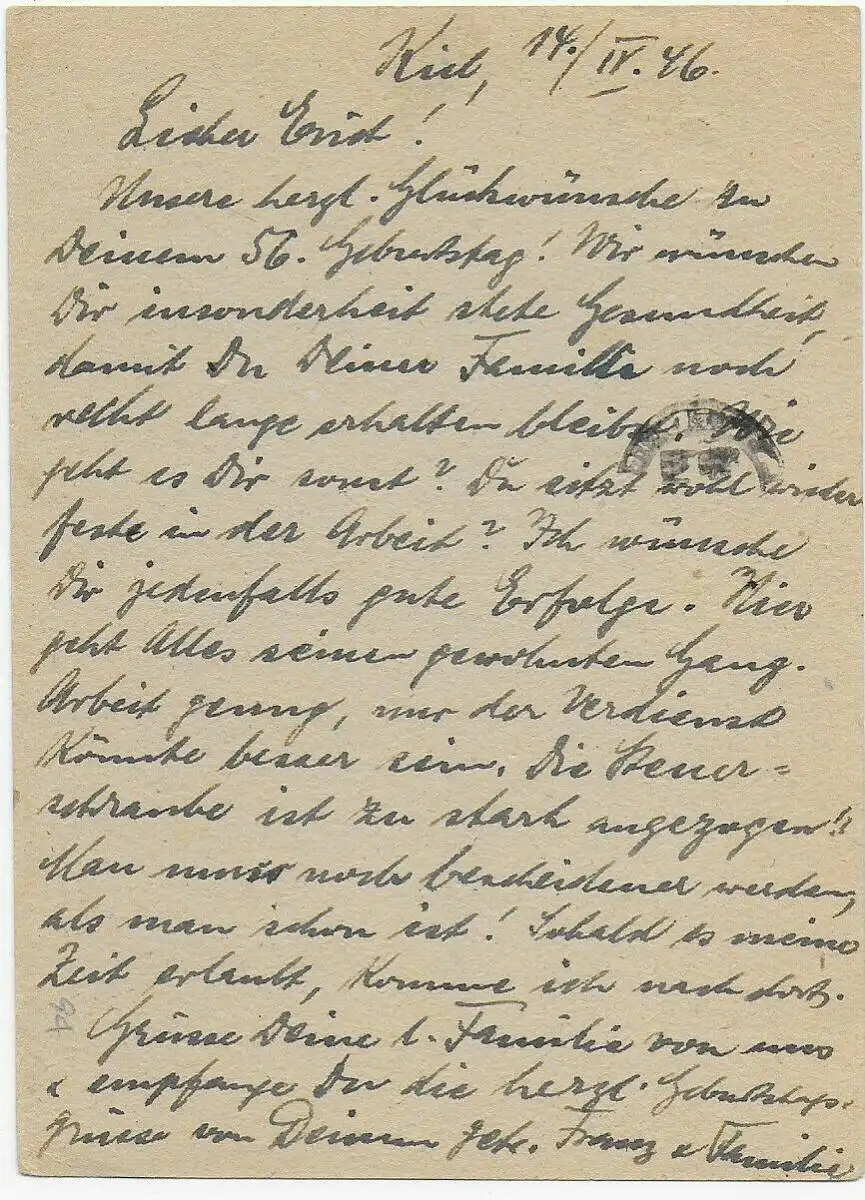 Kiel, 14./IV. 46.
Lieber Erich!
Unsere herzl. Glückwünsche zu
Deinem 56. Geburtstag! Wir wünschen
Dir insonderheit stete Gesundheit,
damit Du Deiner Familie noch
recht lange erhalten bleibst. Wie
geht es Dir sonst? Du sitzt wohl wieder
feste in der Arbeit? Ich wünsche
Dir jedenfalls gute Erfolge. Hier
geht Alles seinen gewohnten Gang.
Arbeit genug, nur der Verdienst
könnte besser sein. Die Steuer=
schraube ist zu stark angezogen!!
Man muss noch bescheidener werden,
als man schon ist! Sobald es meine
Zeit erlaubt, komme ich nach dort.
Grüsse Deine l. Familie von uns
u empfange Du die herzl. Geburtstags-
grüsse von Deinem getr. Franz u Familie